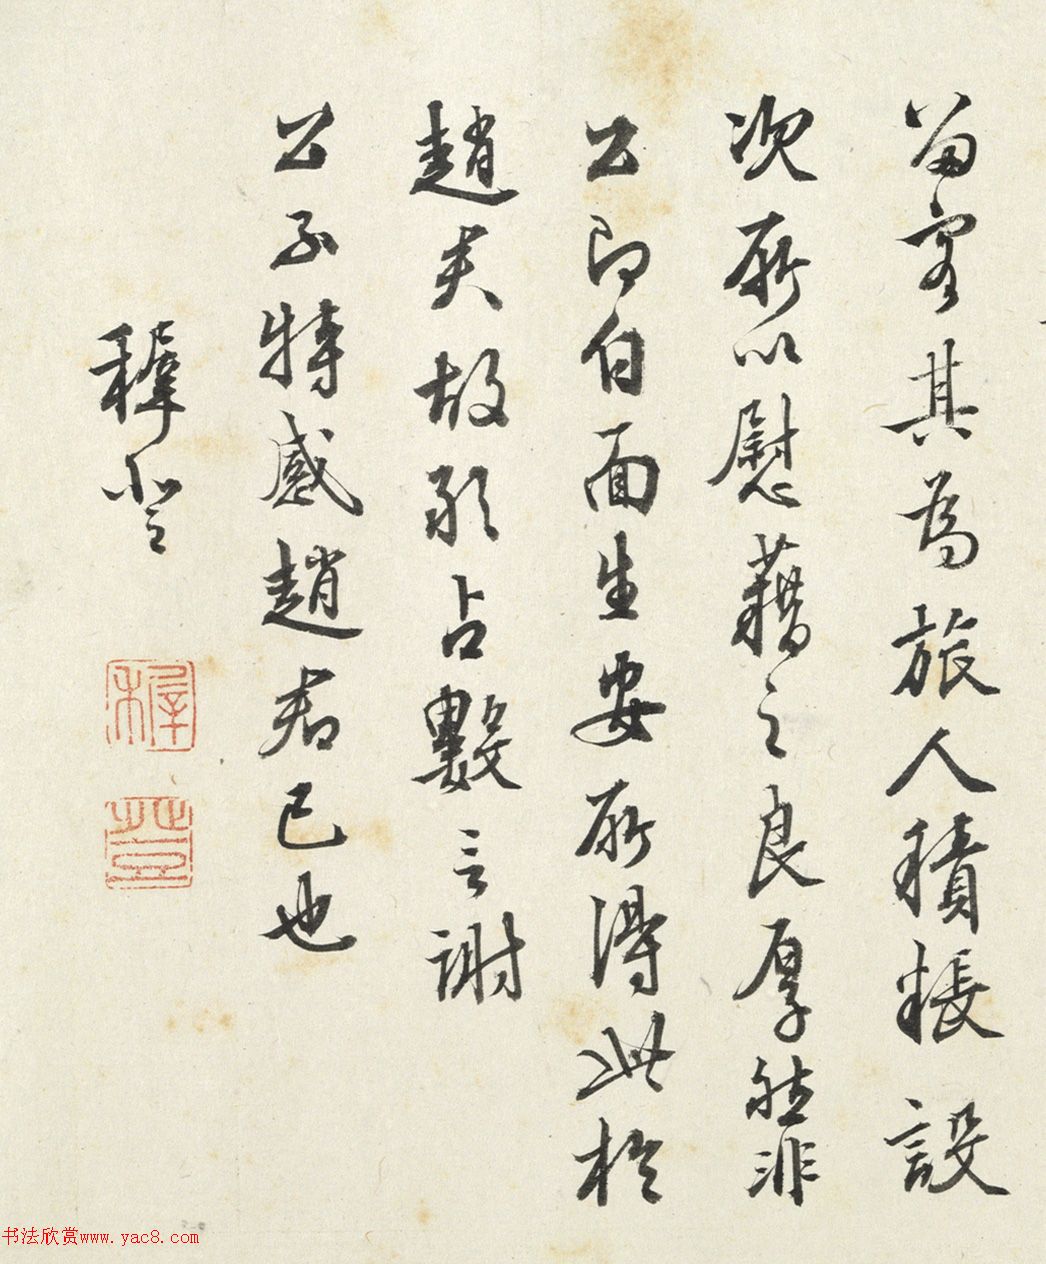 留客其為旅人積粻設
次所以慰藉之良厚然非
公即白面生安所得此於
趙夫故敢占數言謝
公不特感趙君已也
穉登
穉
登
书法欣赏www.yac8.com